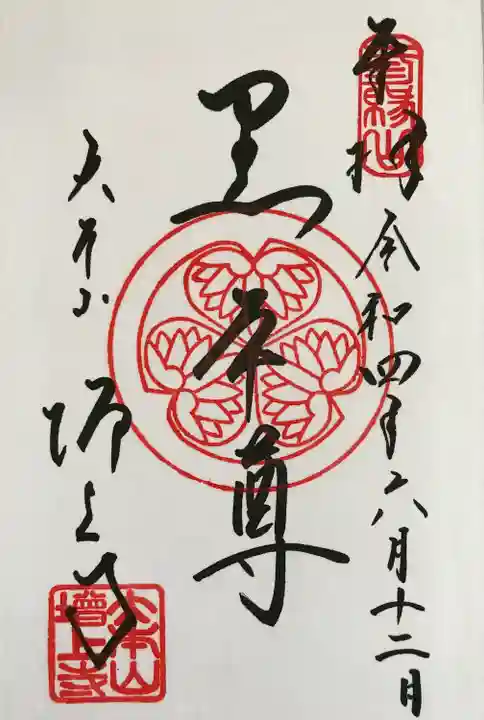 奉拝
令和四年六月十二日
黒本尊
大本山
増上寺
大本山
増上寺